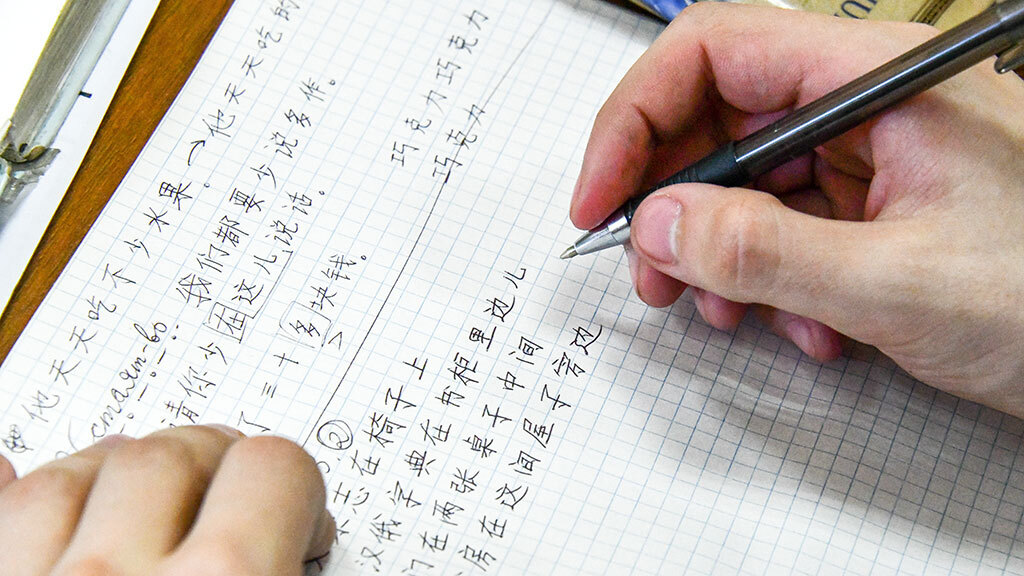 他天天吃不少水果。→他天天吃的
我们都要少说多作。
请你少在这儿说话。
了三十多块钱。
巧克力巧克力
巧克力
②
志在椅子上
汉俄字典在书柜里边儿
门在两张桌子中间
房在这间屋子旁边